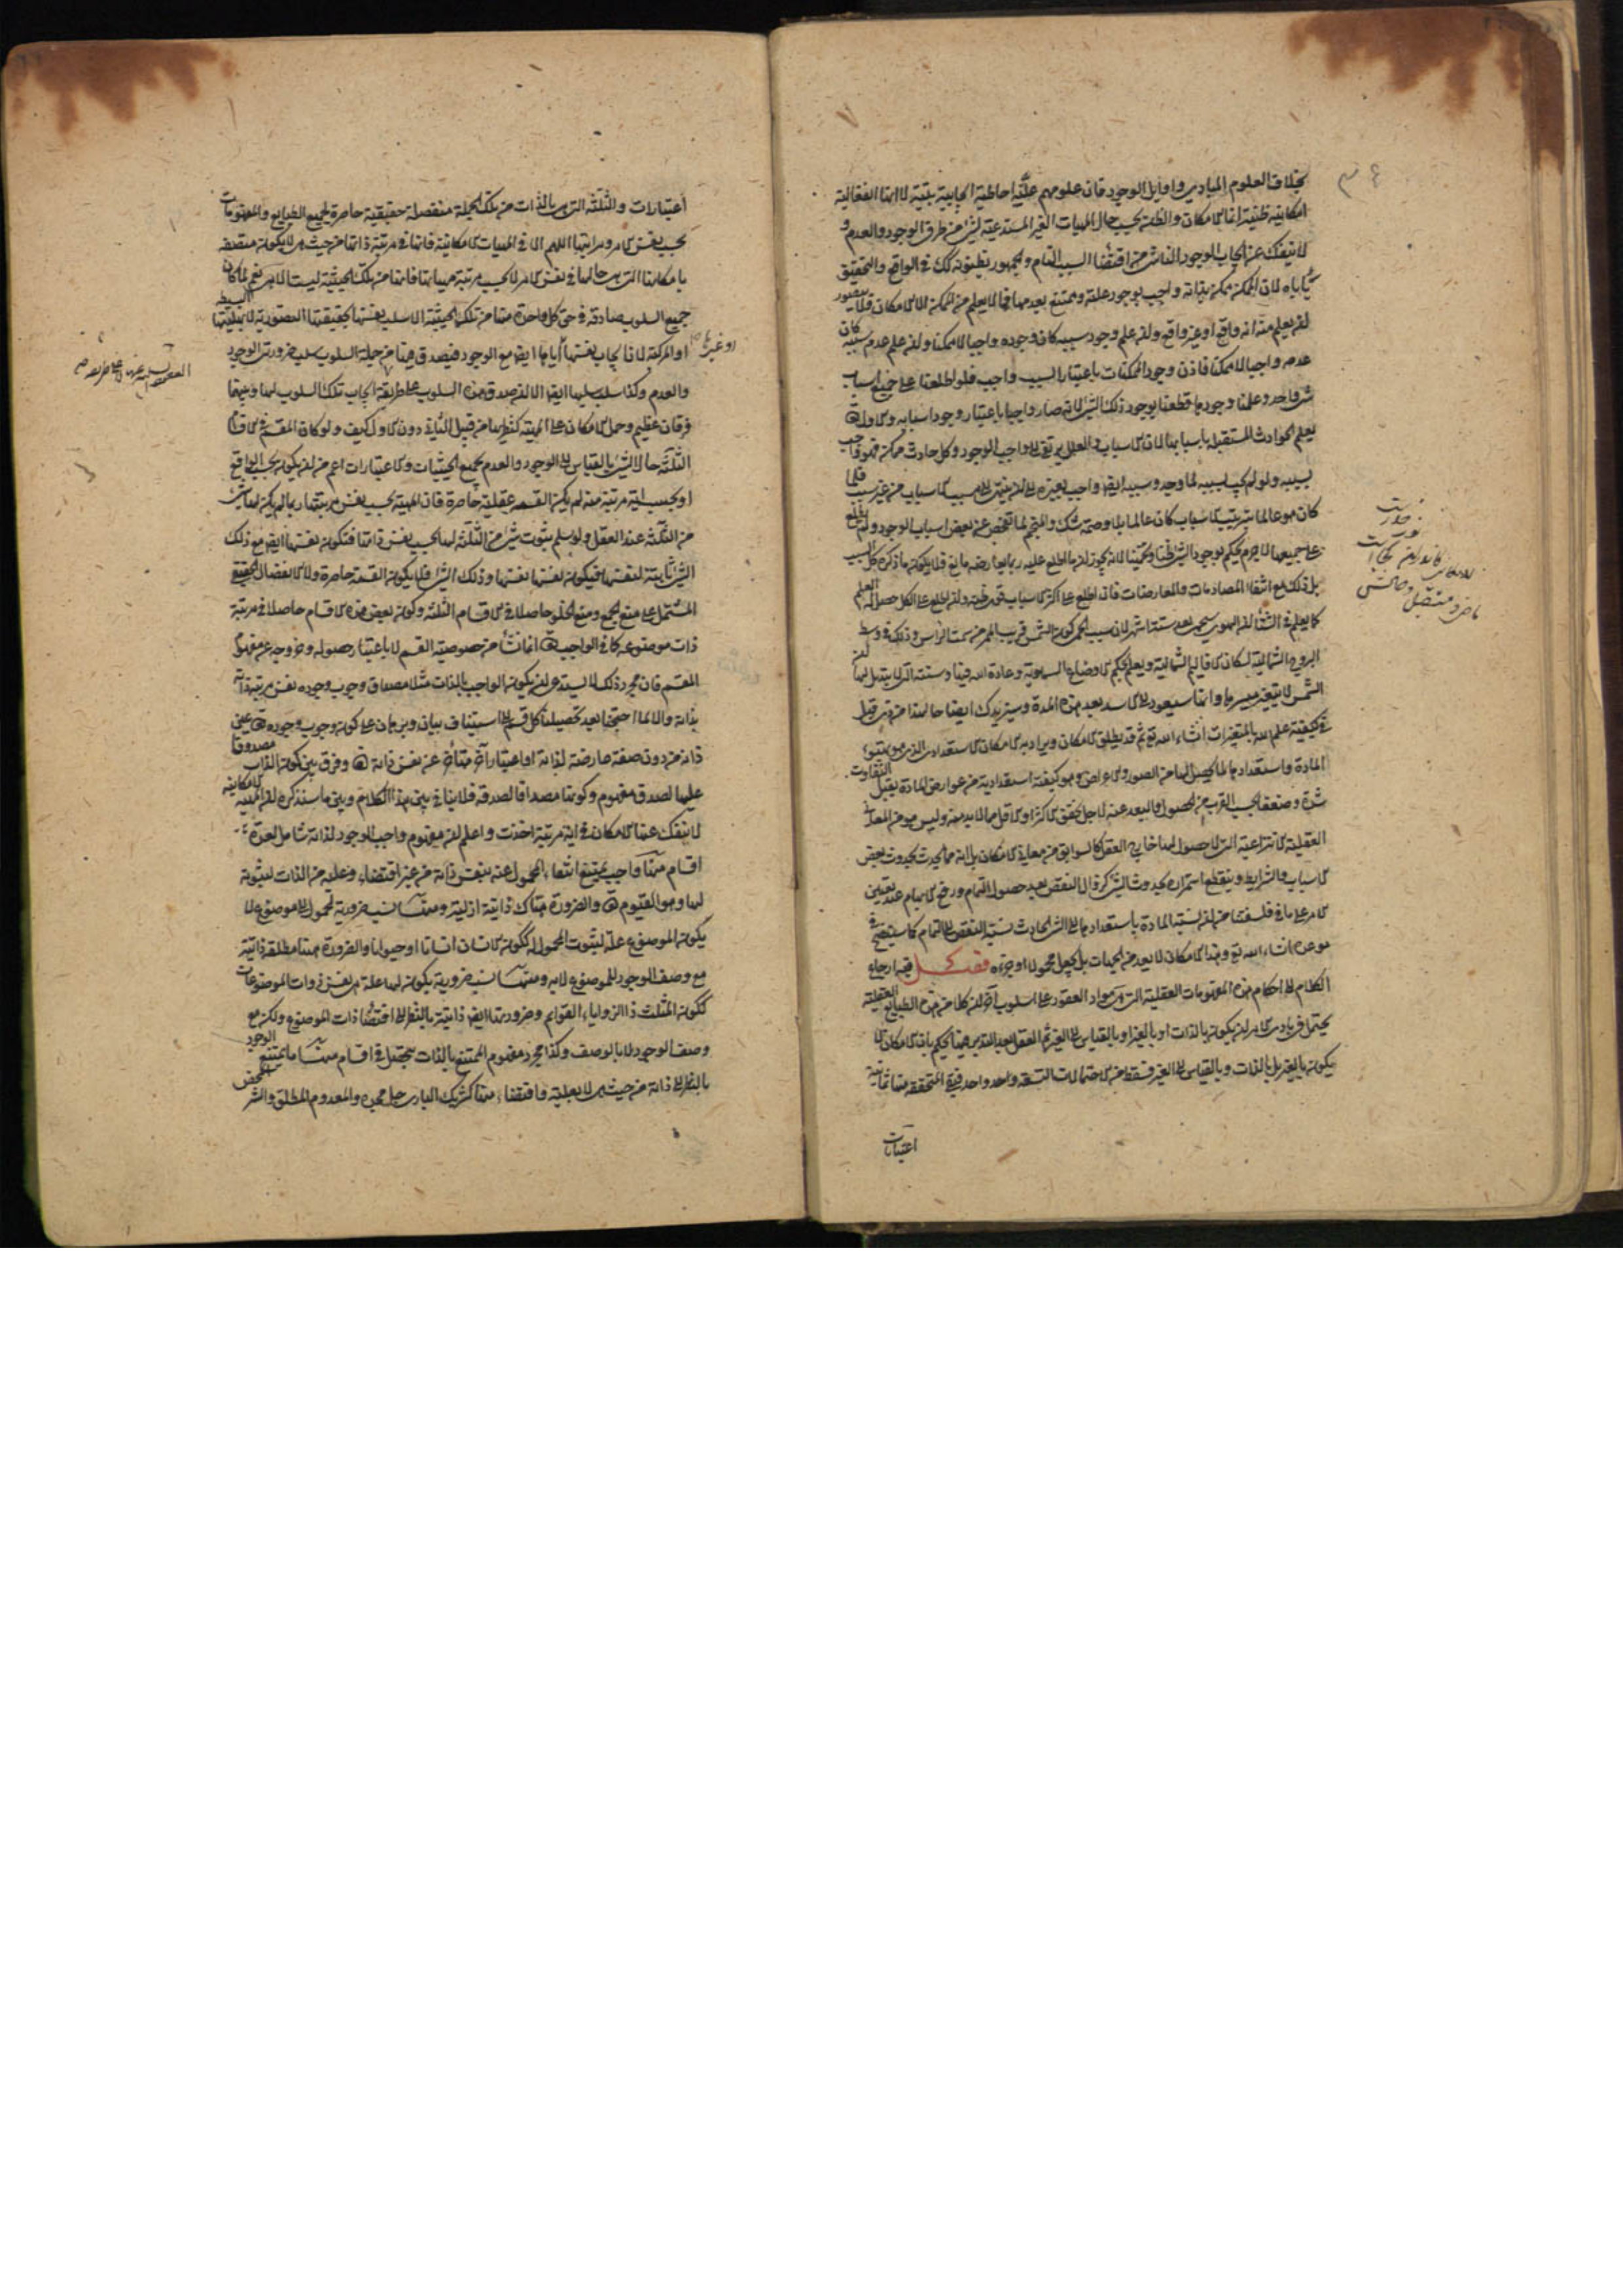 بخلاف العلوم المبادي واوايل الوجود فان علومهم عليّة احاطية ايجابية بتّية لا انها انفعالية
امكانية ظنية انما الامكان والظنة بحسب حال المهيات الغير المستدعية لشئ من طرفي الوجود والعدم و
لا ينفك عن ايجاب الوجود الناشي من اقتضاء السبب التام والجمهور يظنون ذلك في الواقع والتحقيق
يأباه لان الممكن ممكن بذاته واجب بوجود علته وممتنع بعدمها فما لا يعلم من الممكن الا الامكان فلا يتصور
لن يعلم منه انه واقع او غير واقع ولن علم وجود سببه كان وجوده واجبا لا ممكنا ولن علم عدم سببه كان
عدمه واجبا لا ممكنا فاذن وجود الممكنات باعتبار السبب واجب فلو اطلعنا على جميع اسباب
شئ واحد وعلمنا وجودها قطعنا بوجود ذلك الشئ لانه صار واجبا باعتبار وجود اسبابه والاول تعالى
يعلم الحوادث المستقبلة باسبابها لان الاسباب والعلل يرتقي الى واجب الوجود وكل حادث ممكن فهو واجب
بسببه ولو لم يجب بسببه لما وجد وسببه ايضا واجب بغيره الى لن ينتهي الى مسبب الاسباب من غير سبب فلما
كان هو عالما بترتيب الاسباب كان عالما بلا وصمة شك والمنجم لما تفحص عن بعض اسباب الوجود ولم يطلع
على جميعها لا جرم يحكم بوجود الشئ ظنا وتخمينا لانه يجوز لن ما اطلع عليه ربما يعارضه مانع فلا يكون ما ذكره كل السبب
بل ذلك مع انتفاء المصادمات والمعارضات فان اطلع على اكثر الاسباب قوي ظنه ولن اطلع على الكل حصل له العلم
كما يعلم في الشتاء لن الهواء سيحمى بعد ستة اشهر لان سبب الحمى كون الشمس قريب الممر من سمت الراس وذلك في وسط
البروج الشمالية لسكان الاقاليم الشمالية ويعلم بحكم الاوضاع السماوية وعادة الله فيها وسنته التي لا يتبدل لها لن
الشمس لا يتغير مسيرها وانها سيعود الى الاسد بعد هذه المدة وسيزيدك ايضاحا لهذا من ذي قبل
في كيفية علم الله بالمتغيرات انشاء الله تع ثم قد يطلق الامكان ويراد به الامكان الاستعدادي الذي هو تهيؤ
المادة واستعدادها لما يحصل لها من الصور والاعراض وهو كيفية استعدادية من عوارض المادة يقبل التفاوت
شدة وضعفا بحسب القرب من الحصول والبعد عنه لاجل تحقق الاكثر او الاقل مما لا بد منه وليس هو من المعاني
العقلية الانتزاعية التي لا حصول لها خارج العقل كالسوابق من معاني الامكان بل انه مما يحدث بحدوث بعض
الاسباب والشرايط وينقطع استمراره بحدوث الشئ كزوال النقص بعد حصول التمام ورفع الابهام عند تعين
الامر على ما في فلسفتنا من لن نسبة المادة باستعدادها الى الشئ الحادث نسبة النقص الى التمام كما سيتضح في
موعده انشاء الله تع وهذا الامكان لا يعد من الجهات بل يجعل محمولا او جزءه فصل فيه ارجاع
الكلام الى احكام هذه المفهومات العقلية التي هي مواد العقود على اسلوب آخر لن كلا من هذه الطبايع العقلية
يحتمل في بادي الامر لن يكون بالذات او بالغير او بالقياس الى الغير ثم العقل بعد التدبر يحكم بان الامكان لا
يكون بالغير بل بالذات وبالقياس الى الغير فسقط من الاحتمالات التسعة واحد واحد فبقي المتحققة منها ثمانية
اعتبارات
اعتبارات والثلثة التي هي بالذات من تلك الجملة منفصلة حقيقية حاصرة لجميع الطبايع والمفهومات
بحسب نفس الامر ومراتبها اللهم الا في المهيات الامكانية فانها في مرتبة ذاتها من حيث هي لا يكون متصفة
بامكانها التي هي حالها في نفس الامر لا بحسب مرتبة مهياتها فانها من تلك الحيثية ليست الا هي نعم لما كان
جميع السلوب صادقة في حق كل واحدة منها من تلك الحيثية الا سلب نفسها بحقيقتها التصورية لا بهليتها البسيطة
او المركبة لان ايجاب نفسها اياها ايضا مع الوجود فيصدق فيها من جملة السلوب سلب ضرورتي الوجود
والعدم وكذا سلب سلبها ايضا الا لن صدق هذه السلوب على طريقة ايجاب تلك السلوب لها وبينهما
فرقان عظيم وحمل الامكان على المهية كنظايرها من قبيل الثاني دون الاول كيف ولو كان المقسم في الاقسام
الثلثة حال الشئ بالقياس الى الوجود والعدم بجميع الحيثيات والاعتبارات اعم من لن يكون بحسب الواقع
او بحسب اية مرتبة منه لم يكن القسمة عقلية حاصرة فان المهية بحسب نفس مرتبتها ربما لم يكن لها شئ
من الثلثة عند العقل ولو سلم ثبوت شئ من الثلثة لها بحسب نفس ذاتها فتكون نفسها ايضا مع ذلك
الشئ ثابتة لنفسها فيكون نفسها نفسها وذلك الشئ فلا يكون القسمة حاصرة ولا الانفصال الحقيقي
المشتمل على منع الجمع ومنع الخلو حاصلا في الاقسام الثلثة وكون بعض هذه الاقسام حاصلا في مرتبة
ذات موضوعه كما في الواجب تعالى انما نشأ من خصوصية القسم لا باعتبار حصوله وخروجه عن مفهوم
المقسم فان مجرد ذلك لا يستدعي لن يكون الواجب بالذات مثلا مصداق وجوب وجوده نفس مرتبة ذاته
بذاته والا لما احتجنا بعد تحصيلنا كل قسم الى استيناف بيان وبرهان على كون وجوب وجوده تعالى عين
ذاته من دون صفة عارضة لذاته او اعتبار آخر متأخر عن نفس ذاته تعالى وفرق بين كون الذات مصدوقا
عليها لصدق مفهوم وكونها مصداقا لصدقه فلا ينافي بين هذا الكلام وبين ما سنذكره لن المهية الامكانية
لا ينفك عنها الامكان في اية مرتبة اخذت واعلم لن مفهوم واجب الوجود لذاته شامل لعدة
اقسام منها واجب يمتنع انتفاء المحمول عنه بنفس ذاته من غير اقتضاء وعلية من الذات لثبوته
لها وهو القيوم تعالى والضرورة هناك ذاتية ازلية ومنها نسب ضرورية لمحمول الى موضوع لا
يكون الموضوع علة لثبوت المحمول له ككون الانسان انسانا او حيوانا والضرورة هيهنا مطلقة ذاتية
مع وصف الوجود للموضوع لا به ومنها نسب ضرورية يكون لها علة هي نفس ذوات الموضوعات
ككون المثلث ذا الزوايا القوايم وضرورتها ايضا ذاتية بالنظر الى اقتضاء ذات الموضوع ولكن مع
وصف الوجود لا بالوصف وكذا مجرد مفهوم الممتنع بالذات يحتمل في اقسام منها ما يمتنع الوجود
بالنظر الى ذاته من حيث هي لا بعلية واقتضاء منها كشريك الباري جل مجده والمعدوم المطلق والشر المحض